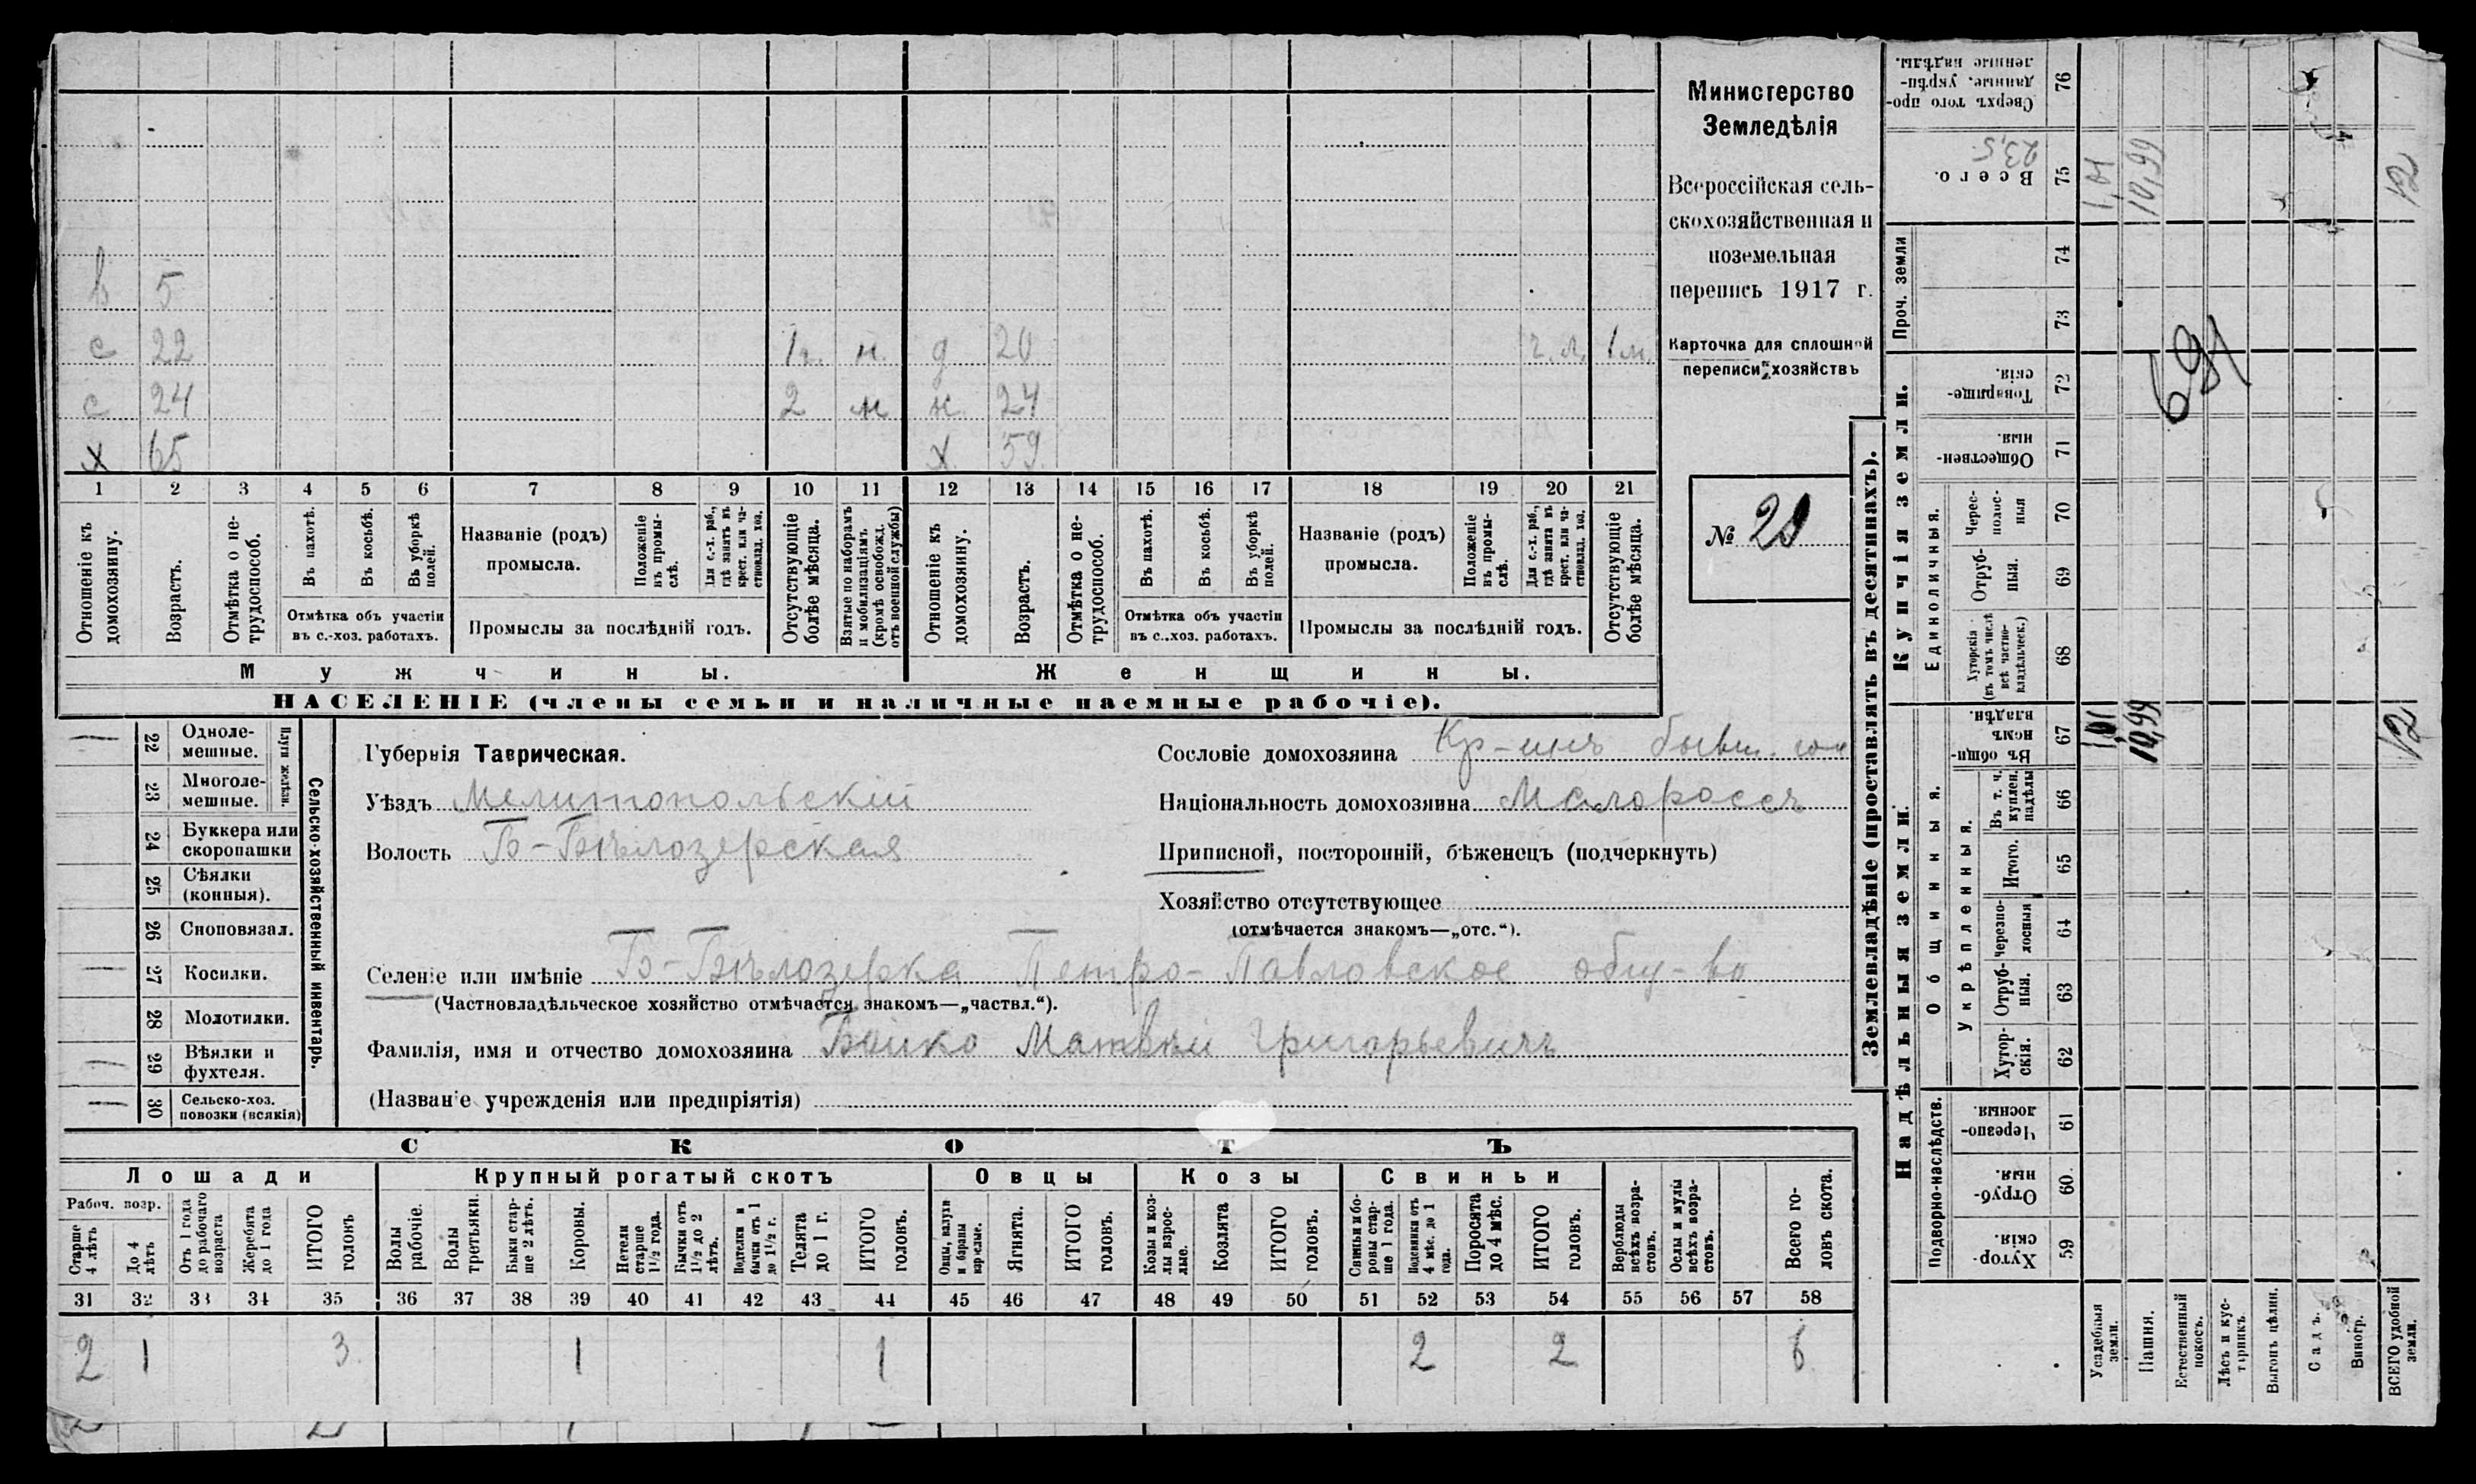 в 5
с 22 1 г. н. д 20 ч. л. 1 м.
с 24 2 н н. 24
х 65 х 59
1 2 3 4 5 6 7 8 9 10 11 12 13 14 15 16 17 18 19 20 21
Отношеніе къ домохозяину.
Возрастъ.
Отмѣтка о нетрудоспособ.
Въ пахотѣ.
Въ косьбѣ.
Въ уборкѣ полей.
Отмѣтка объ участіи
въ с.-хоз. работахъ.
Названіе (родъ)
промысла.
Положеніе въ промыслѣ.
Для с.-х. раб., гдѣ занятъ въ крест. или частновлад. хоз.
Промыслы за послѣдній годъ.
Отсутствующіе болѣе мѣсяца.
Взятые по наборамъ и мобилизаціямъ (кромѣ освобожд. отъ военной службы)
Отношеніе къ домохозяину.
Возрастъ.
Отмѣтка о нетрудоспособ.
Въ пахотѣ.
Въ косьбѣ.
Въ уборкѣ полей.
Отмѣтка объ участіи
въ с..хоз. работахъ.
Названіе (родъ)
промысла.
Положеніе въ промыслѣ.
Для с.-х. раб., гдѣ занята въ крест. или частновлад. хоз.
Промыслы за послѣдній годъ.
Отсутствующіе болѣе мѣсяца.
Мужчины.
Женщины.
НАСЕЛЕНІЕ (члены семьи и наличные наемные рабочіе).
Министерство
Земледѣлія
Всероссійская сель-
скохозяйственная и
поземельная
перепись 1917 г.
Карточка для сплошной
переписи хозяйствъ
№ 20
22 Одноле-
мешные.
23 Многоле-
мешные.
Плуги желѣзн.
24 Буккера или
скоропашки
25 Сѣялки
(конныя).
26 Сноповязал.
27 Косилки.
28 Молотилки.
29 Вѣялки и
фухтеля.
30 Сельско-хоз.
повозки (всякія)
Сельско-хозяйственный инвентарь.
Губернія Таврическая.
Уѣздъ Мелитопольскій
Волость Б-Бѣлозерская
Сословіе домохозяина Кр-инъ бывш. гос
Національность домохозяина Малороссъ
Приписной, посторонній, бѣженецъ (подчеркнуть)
Хозяйство отсутствующее
(отмѣчается знакомъ—„отс.“).
Селеніе или имѣніе Б-Бѣлозерка Петро-Павловское общ-во
(Частновладѣльческое хозяйство отмѣчается знакомъ—„частвл.“).
Фамилія, имя и отчество домохозяина Бойко Матвѣй Григорьевичъ
(Названіе учрежденія или предпріятія)
СКОТЪ
Лошади
Крупный рогатый скотъ
Овцы
Козы
Свиньи
Рабоч. возр.
Старше 4 лѣтъ
До 4 лѣтъ
Отъ 1 года до рабочаго возраста
Жеребята до 1 года
ИТОГО головъ
Волы рабочіе.
Волы третьяки.
Быки старше 2 лѣтъ.
Коровы.
Нетели старше 1½ года.
Бычки отъ 1½ до 2 лѣтъ.
Подтелки и бычки отъ 1 до 1½ г.
Телята до 1 г.
ИТОГО головъ.
Овцы, валухи и бараны взрослые.
Ягнята.
ИТОГО головъ.
Козы и козлы взрослые.
Козлята
ИТОГО головъ.
Свиньи и боровы старше 1 года.
Подсвинки отъ 4 мѣс. до 1 года.
Поросята до 4 мѣс.
ИТОГО головъ.
Верблюды всѣхъ возрастовъ.
Ослы и мулы всѣхъ возрастовъ.
Всего головъ скота.
31 32 33 34 35 36 37 38 39 40 41 42 43 44 45 46 47 48 49 50 51 52 53 54 55 56 57 58
2 1 3 1 1 2 2 6
Землевладѣніе (проставлять въ десятинахъ).
Надѣльныя земли.
Купчія земли.
Проч. земли
Подворно-наслѣдств.
Общинныя.
Укрѣпленныя.
Единоличныя.
Хуторскія 59
Отрубныя 60
Черезполосныя. 61
Хуторскія. 62
Отрубныя. 63
Черезполосныя 64
Итого. 65
Въ т. ч. куплен. надѣлы 66
Въ общинномъ владѣн. 67
Хуторскія (въ томъ числѣ всѣ частновладѣльческ.) 68
Отрубныя. 69
Черезполосныя 70
Общественныя. 71
Товарищескія. 72
73
74
Всего. 75
23,5
Сверхъ того проданные, укрѣпленные надѣлы. 76
Усадебныя земли.
Пашня.
Естественный покосъ.
Лѣсъ и кустарникъ.
Выгонъ цѣлин.
Садъ.
Виногр.
ВСЕГО удобной земли.
1,01
10,99
12
1,01
10,99
12
691